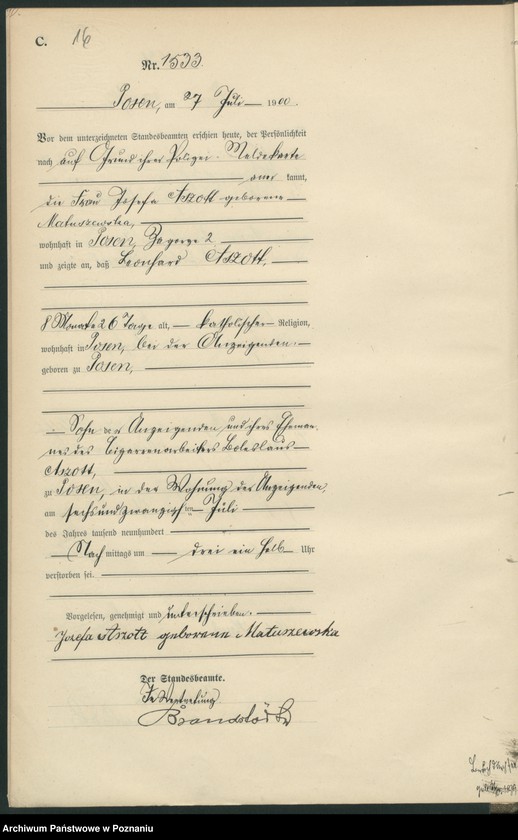 C. 16
Nr. 1533
Posen, am 27 Juli 1900.
Vor dem unterzeichneten Standesbeamten erschien heute, der Persönlichkeit
nach auf Grund ihrer Polizei-Meldekarte
aner kannt,
die Frau Josefa Aszott geborene
Matuszewska,
wohnhaft in Posen, Zagorze 2
und zeigte an, daß Leonhard Aszott,
8 Monate 26 Tage alt, katholischer Religion,
wohnhaft in Posen, bei der Anzeigenden,
geboren zu Posen,
Sohn der Anzeigenden und ihres Eheman-
nes des Cigarrenarbeiters Boleslaus
Aszott,
zu Posen, in der Wohnung der Anzeigenden,
am sechsundzwanzigsten Juli
des Jahres tausend neunhundert
Nach mittags um drei ein halb Uhr
verstorben sei.
Vorgelesen, genehmigt und unterschrieben.
Jozefa Aszott geborene Matuszewska
Der Standesbeamte.
In Vertretung
Archiwum Państwowe w Poznaniu